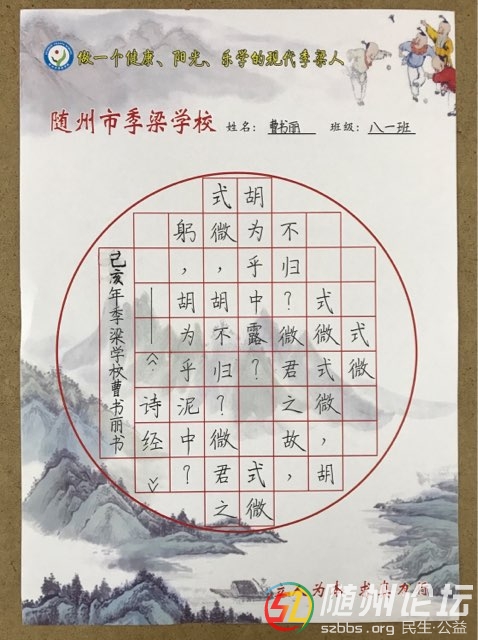 做一个健康、阳光、乐学的现代季梁人
随州市季梁学校 姓名：曹书丽 班级：八一班
式微
式微式微，胡
不归？微君之故，
胡为乎中露？式微
式微，胡不归？微君之
躬，胡为乎泥中？
——《诗经》
己亥年季梁学校曹书丽书
为本 求真力
随州论坛
szbbs.org 民生·公益